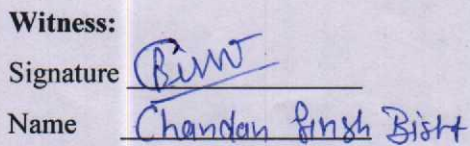 Witness:
Signature Bisht
Name Chandan Singh Bisht